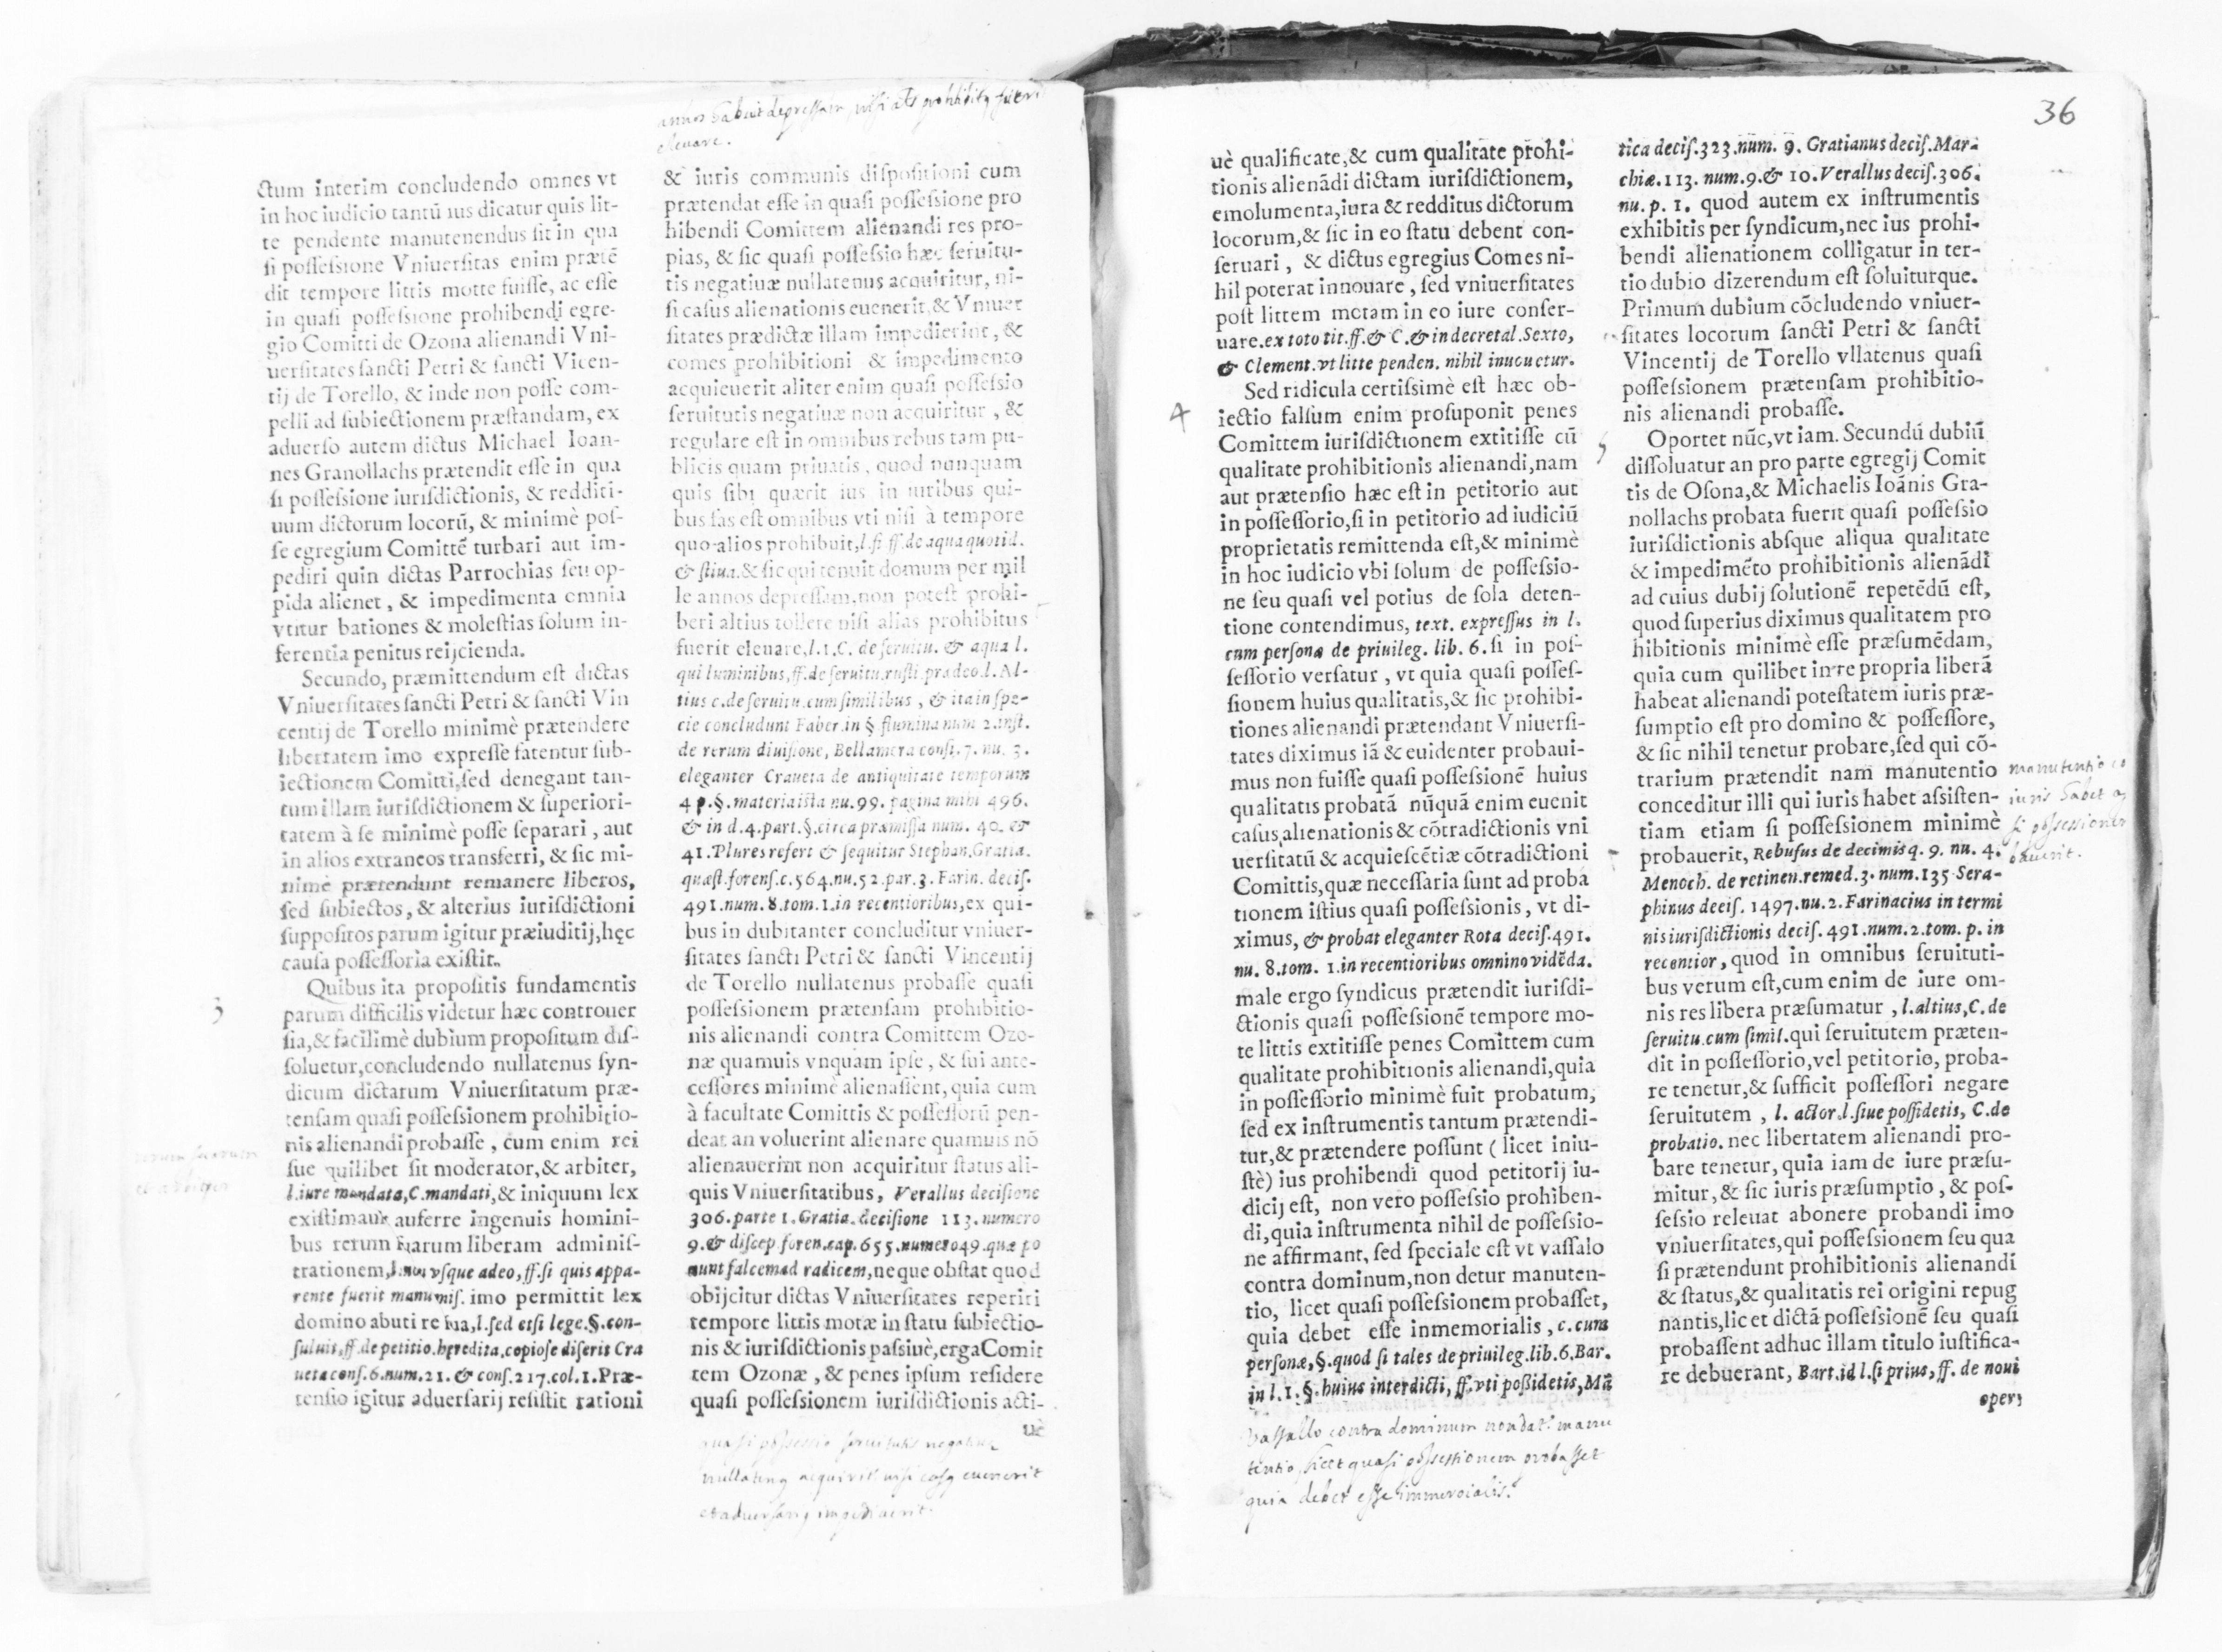 annos habuit depressam, nisi als prohibitq fuerit
eleuare.
ctum interim concludendo omnes vt
in hoc iudicio tantū ius dicatur quis lit-
te pendente manutenendus sit in qua
si possessione Vniuersitas enim prætē
dit tempore littis motte fuisse, ac esse
in quasi possessione prohibendi egre-
gio Comitti de Ozona alienandi Vni-
uersitates sancti Petri & sancti Vicen-
tij de Torello, & inde non posse com-
pelli ad subiectionem præstandam, ex
aduerso autem dictus Michael Ioan-
nes Granollachs prætendit esse in qua
si possessione iurisdictionis, & redditi-
uum dictorum locorū, & minimè pos-
se egregium Comittē turbari aut im-
pediri quin dictas Parrochias seu op-
pida alienet, & impedimenta omnia
vtitur bationes & molestias solum in-
ferentia penitus reijcienda.
Secundo, præmittendum est dictas
Vniuersitates sancti Petri & sancti Vin
centij de Torello minimè prætendere
libertatem imo expresse fatentur sub-
iectionem Comitti, sed denegant tan-
tum illam iurisdictionem & superiori-
tatem à se minimè posse separari, aut
in alios extraneos transferri, & sic mi-
nimè prætendunt remanere liberos,
sed subiectos, & alterius iurisdictioni
suppositos parum igitur præiuditij, hęc
causa possessoria existit.
3
Quibus ita propositis fundamentis
parum difficilis videtur hæc controuer
sia, & facilimè dubium propositum dis-
soluetur, concludendo nullatenus syn-
dicum dictarum Vniuersitatum præ-
tensam quasi possessionem prohibitio-
nis alienandi probasse, cum enim rei
sue quilibet sit moderator, & arbiter,
l. iure mandata, C. mandati, & iniquum lex
existimauit auferre ingenuis homini-
bus rerum suarum liberam adminis-
trationem, l. non vsque adeo, ff. si quis appa-
rente fuerit manumis. imo permittit lex
domino abuti re sua, l. sed etsi lege. §. con-
suluit, ff. de petitio. hęredita, copiose diserit Cra
ueta cons. 6. num. 21. & cons. 217. col. 1. Præ-
tensio igitur aduersarij resistit rationi
& iuris communis dispositioni cum
prætendat esse in quasi possessione pro
hibendi Comittem alienandi res pro-
pias, & sic quasi possessio hæc seruitu-
tis negatiuæ nullatenus acquiritur, ni-
si casus alienationis euenerit, & Vniuer
sitates prædictæ illam impedierint, &
comes prohibitioni & impedimento
acquieuerit aliter enim quasi possessio
seruitutis negatiuæ non acquiritur, &
regulare est in omnibus rebus tam pu-
blicis quam priuatis, quod nunquam
quis sibi quærit ius in iuribus qui-
bus fas est omnibus vti nisi à tempore
quo alios prohibuit, l. si ff. de aqua quotid.
& stiua. & sic qui tenuit domum per mil
le annos depressam, non potest prohi-
beri altius tollere nisi alias prohibitus
fuerit eleuare, l. 1. C. de seruitu. & aqua l.
qui luminibus, ff. de seruitu. rusti. prædeo. l. Al-
tius c. de seruitu. cum similibus, & ita in spe-
cie concludunt Faber. in § flumina num 2. inst.
de rerum diuisione, Bellamera consi. 7. nu. 3.
eleganter Craueta de antiquitate temporum
4 p. §. materia ista nu. 99. pagina mihi 496.
& in d. 4. part. §. circa præmissa num. 40. &
41. Plures refert & sequitur Stephan. Gratia.
quæst. forens. c. 564. nu. 52. par. 3. Farin. decis.
491. num. 8. tom. 1. in recentioribus, ex qui-
bus in dubitanter concluditur vniuer-
sitates sancti Petri & sancti Vincentij
de Torello nullatenus probasse quasi
possessionem prætensam prohibitio-
nis alienandi contra Comittem Ozo-
næ quamuis vnquam ipse, & sui ante-
cessores minimè alienassent, quia cum
à facultate Comittis & possessorū pen-
deat an voluerint alienare quamuis nō
alienauerint non acquiritur status ali-
quis Vniuersitatibus, Verallus decisione
306. parte 1. Gratia. decisione 113. numero
9. & discep. foren. cap. 655. numero 49. quæ po
nunt falcem ad radicem, neque obstat quod
obijcitur dictas Vniuersitates reperiri
tempore littis motæ in statu subiectio-
nis & iurisdictionis passiuè, erga Comit
tem Ozonæ, & penes ipsum residere
quasi possessionem iurisdictionis acti-
uè
quasi possessio seruitutis negatiuæ
nullatenq acquirit nisi casq euenerit
et aduersariq impedierit.
36
uè qualificate, & cum qualitate prohi-
tionis alienādi dictam iurisdictionem,
emolumenta, iura & redditus dictorum
locorum, & sic in eo statu debent con-
seruari, & dictus egregius Comes ni-
hil poterat innouare, sed vniuersitates
post littem motam in eo iure conser-
uare. ex toto tit. ff. & C. & in decretal. Sexto,
& Clement. vt litte penden. nihil inuouetur.
4
Sed ridicula certissimè est hæc ob-
iectio falsum enim prosuponit penes
Comittem iurisdictionem extitisse cū
qualitate prohibitionis alienandi, nam
aut prætensio hæc est in petitorio aut
in possessorio, si in petitorio ad iudiciū
proprietatis remittenda est, & minimè
in hoc iudicio vbi solum de possessio-
ne seu quasi vel potius de sola deten-
tione contendimus, text. expressus in l.
cum personæ de priuileg. lib. 6. si in pos-
sessorio versatur, vt quia quasi posses-
sionem huius qualitatis, & sic prohibi-
tiones alienandi prætendant Vniuersi-
tates diximus iā & euidenter probaui-
mus non fuisse quasi possessionē huius
qualitatis probatā nūquā enim euenit
casus alienationis & cōtradictionis vni
uersitatū & acquiescētiæ cōtradictioni
Comittis, quæ necessaria sunt ad proba
tionem istius quasi possessionis, vt di-
ximus, & probat eleganter Rota decis. 491.
nu. 8. tom. 1. in recentioribus omnino vidēda.
male ergo syndicus prætendit iurisdi-
ctionis quasi possessionē tempore mo-
te littis extitisse penes Comittem cum
qualitate prohibitionis alienandi, quia
in possessorio minimè fuit probatum,
sed ex instrumentis tantum prætendi-
tur, & prætendere possunt ( licet iniu-
stè) ius prohibendi quod petitorij iu-
dicij est, non vero possessio prohiben-
di, quia instrumenta nihil de possessio-
ne affirmant, sed speciale est vt vassalo
contra dominum, non detur manuten-
tio, licet quasi possessionem probasset,
quia debet esse inmemorialis, c. cum
personæ, §. quod si tales de priuileg. lib. 6. Bar.
in l. 1. §. huius interdicti, ff. vti possidetis, Mā
Vassallo contra dominum non dat. manu
tentio, licet quasi possessionem probasset
quia debet esse
tica decis. 323. num. 9. Gratianus decis. Mar-
chiæ. 113. num. 9. & 10. Verallus decis. 306.
nu. p. 1. quod autem ex instrumentis
exhibitis per syndicum, nec ius prohi-
bendi alienationem colligatur in ter-
tio dubio dizerendum est soluiturque.
Primum dubium cōcludendo vniuer-
sitates locorum sancti Petri & sancti
Vincentij de Torello vllatenus quasi
possessionem prætensam prohibitio-
nis alienandi probasse.
5
Oportet nūc, vt iam. Secundū dubiū
dissoluatur an pro parte egregij Comit
tis de Osona, & Michaelis Ioānis Gra-
nollachs probata fuerit quasi possessio
iurisdictionis absque aliqua qualitate
& impedimēto prohibitionis alienādi
ad cuius dubij solutionē repetēdū est,
quod superius diximus qualitatem pro
hibitionis minimè esse præsumēdam,
quia cum quilibet in re propria liberā
habeat alienandi potestatem iuris præ-
sumptio est pro domino & possessore,
& sic nihil tenetur probare, sed qui cō-
trarium prætendit nam manutentio
conceditur illi qui iuris habet assisten-
tiam etiam si possessionem minimè
probauerit, Rebufus de decimis q. 9. nu. 4.
Menoch. de retinen. remed. 3. num. 135 Sera-
phinus decis. 1497. nu. 2. Farinacius in termi
nis iurisdictionis decis. 491. num. 2. tom. p. in
recentior, quod in omnibus seruituti-
bus verum est, cum enim de iure om-
nis res libera præsumatur, l. altius, C. de
seruitu. cum simil. qui seruitutem præten-
dit in possessorio, vel petitorio, proba-
re tenetur, & sufficit possessori negare
seruitutem, l. actor, l. siue possidetis, C. de
probatio. nec libertatem alienandi pro-
bare tenetur, quia iam de iure præsu-
mitur, & sic iuris præsumptio, & pos-
sessio releuat abonere probandi imo
vniuersitates, qui possessionem seu qua
si prætendunt prohibitionis alienandi
& status, & qualitatis rei origini repug
nantis, licet dictā possessionē seu quasi
probassent adhuc illam titulo iustifica-
re debuerant, Bart. id l. si prius, ff. de noui
oper;
manutentio
iuris habet
si possessionem